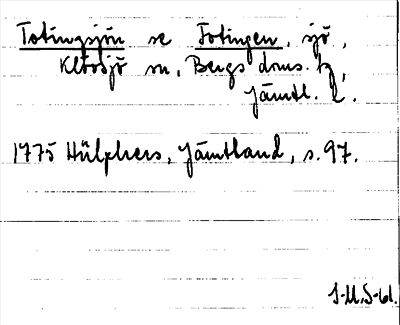 Totingsjön se Totingen, sjö,
Klövsjö sn, Bergs dms. h,
Jämtl. l.
1775 Hülphers, Jämtland, s. 97.
I-M.S-61.